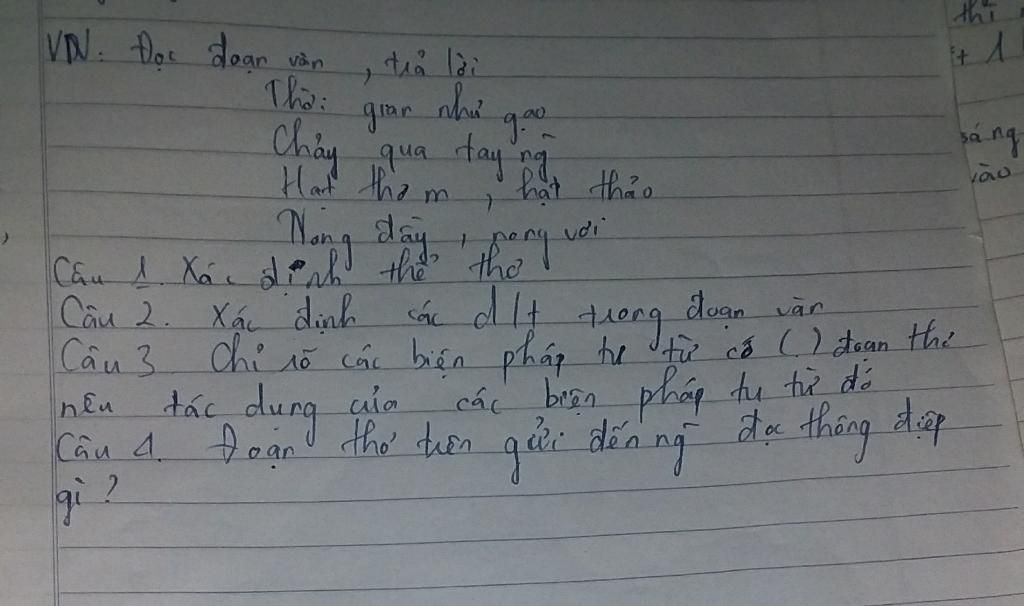 VN: Đọc đoạn văn, trả lời
Thời gian như gạo
Chảy qua tay ng~
Hạt thơm, hạt thảo
Nong đầy, nong vơi
Câu 1. Xác định thể thơ
Câu 2. Xác định các d/t trong đoạn văn
Câu 3 Chỉ rõ các biện pháp tu từ có (.) đoạn thơ
nêu tác dụng của các biện pháp tu từ đó
Câu 4. Đoạn thơ trên gửi đến ng~ đọc thông điệp
gì?
thì
+ 1
sáng
vào